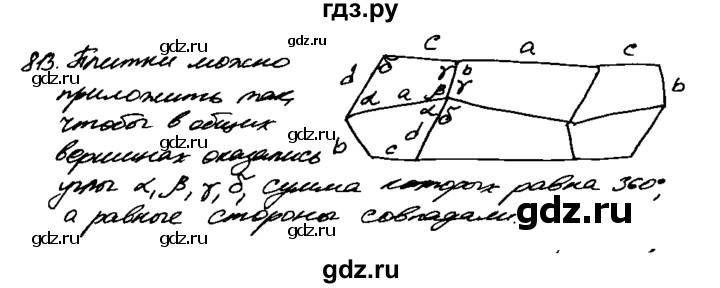 гдз.ру
813. Плитки можно
приложить так,
чтобы в общих
вершинах оказались
углы α, β, γ, δ, сумма которых равна 360°,
а равные стороны совпадали.
c a c
d δ γ b
α a β γ b
α δ
b d
c
gdz.ru gdz.ru gdz.ru
gdz.ru gdz.ru gdz.ru
gdz.ru gdz.ru gdz.ru
gdz.ru gdz.ru gdz.ru
gdz.ru